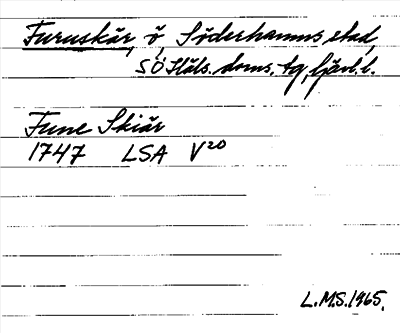 Furuskär, ö, Söderhamns stad,
SÖ Häls. doms. tg, Gävl. l.
Fune Skiär
1747 LSA V20
L.M.S. 1965.